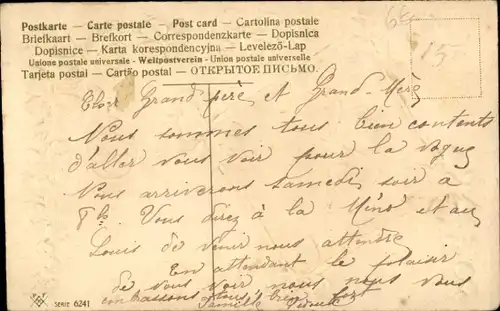 Postkarte – Carte postale – Post card – Cartolina postale
Briefkaart – Brefkort – Correspondenzkarte – Dopisnica
Dopisnice – Karta korespondencyjna – Levelező-Lap
Unione postale universale - Weltpostverein - Union postale universelle
Tarjeta postal – Cartão postal – ОТКРЫТОЕ ПИСЬМО.
15
Grand père et Grand-Mère
Nous sommes tous bien contents
d'aller vous voir pour la vogue
Nous arriverons Samedi soir a
7h. Vous direz à la Mino et au
Louis de venir nous attendre
En attendant le plaisir
de vous voir nous nous vous
embrassons tous bien fort
Famille
SERIE 6241